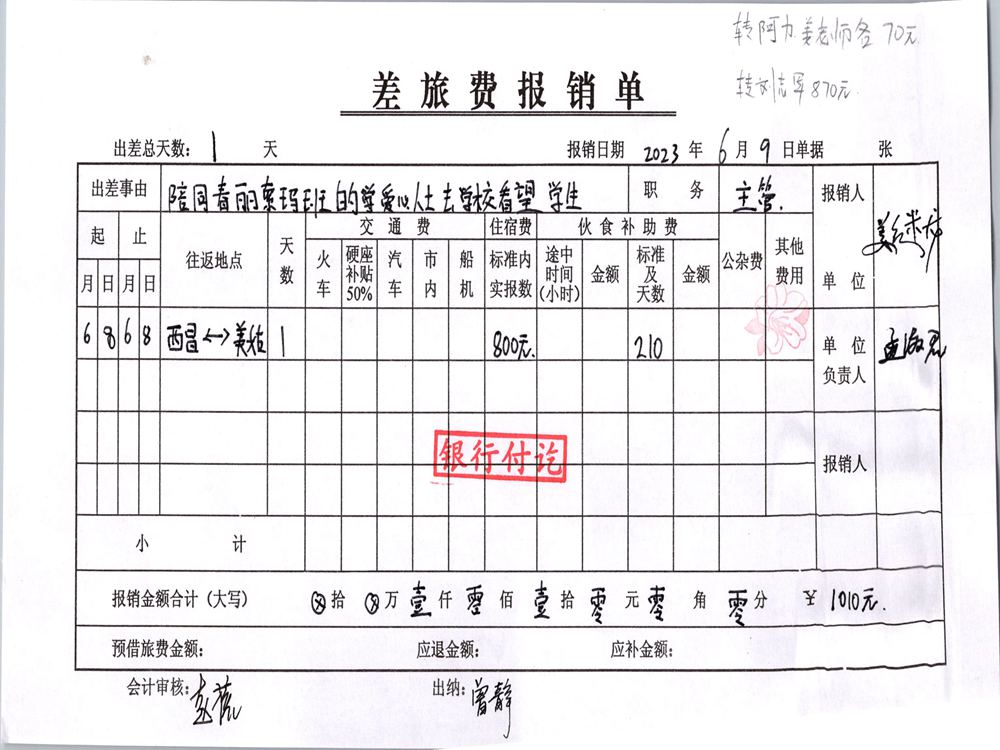 转阿力 姜老师各 70元
转刘志军870元.
差旅费报销单
出差总天数: 1 天 报销日期 2023 年 6 月 9 日单据 张
出差事由 陪同春丽索玛班的学爱心人士去学校看望学生 职务 主管. 报销人
起 止 往返地点 天数 交通费 住宿费 伙食补助费 公杂费 其他费用
月 日 月 日 火车 硬座补贴50% 汽车 市内 船机 标准内实报数 途中时间(小时) 金额 标准及天数 金额 单位
6 8 6 8 西昌<->美姑 1 800元. 210 单位负责人
银行付讫
报销人
小计
报销金额合计(大写) ⊗拾 ⊗万 壹仟 零佰 壹拾 零元 零角 零分 ¥ 1010元.
预借旅费金额: 应退金额: 应补金额:
会计审核: 出纳: 曾静